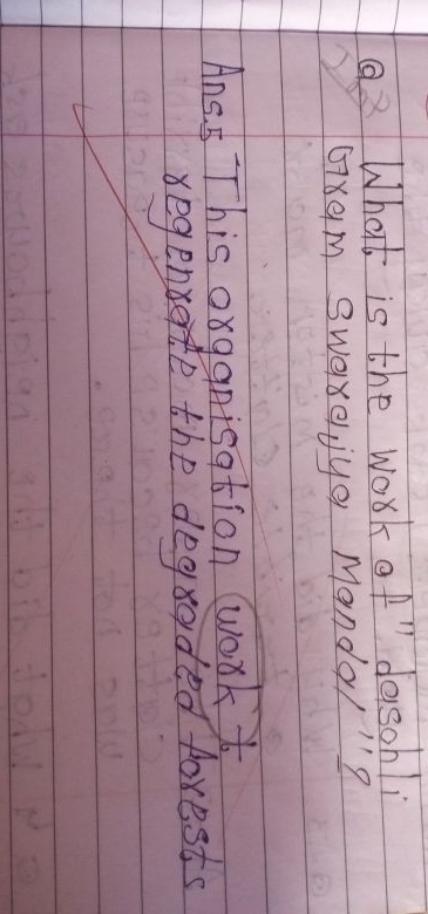 Q What is the work of "dasohli
Gram Swarajya Mandal"?
Ans.5 This organisation work t
regenrate the degraded forests